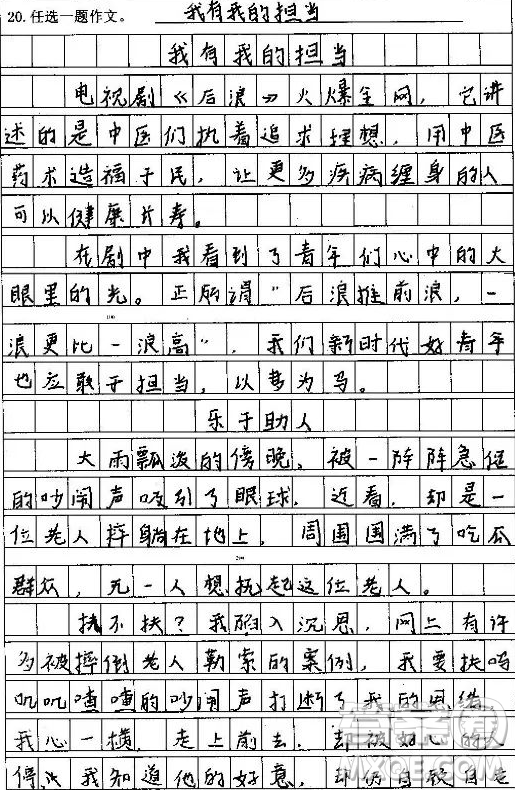 20. 任选一题作文。 我有我的担当
我有我的担当
电视剧《后浪》火爆全网，它讲
述的是中医们执着追求理想，用中医
药术造福于民，让更多疾病缠身的人
可以健康长寿。
在剧中我看到了青年们心中的大
眼里的光。正所谓“后浪推前浪，一
浪更比一浪高”，我们新时代好青年
也应敢于担当，以梦为马。
乐于助人
大雨瓢泼的傍晚，被一阵阵急促
的吵闹声吸引了眼球，近看，却是一
位老人摔躺在地上，周围围满了吃瓜
群众，无一人想扶起这位老人。
扶不扶？我陷入沉思，网上有许
多被摔倒老人勒索的案例，我要扶吗
叽叽喳喳的吵闹声打断了我的思绪
我心一横，走上前去，却被好心的人
停 我知道他的好意，却仍自顾自走